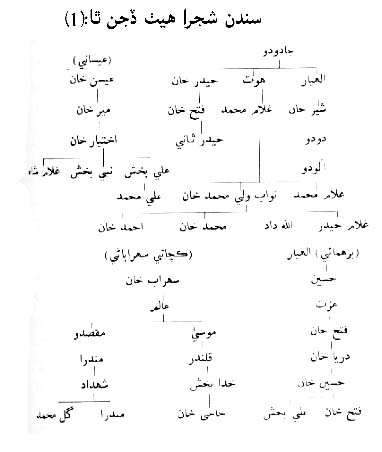 سندن شجرا هيٺ ڏجن ٿا:(1)
جادودو (عيساني)
العيار هوت حيدر خان عيسن خان
شير خان غلام محمد فتح خان مير خان
دودو حيدر ثاني اختيار خان
الودو علي بخش نبي بخش غلام شاه
غلام محمد نواب ولي محمد خان علي محمد
غلام حيدر الله داد محمد خان احمد خان
(برهماني) العيار (ڪڇاتي سهراباڻي)
حسين سهراب خان
عزت عالم
فتح خان موسيٰ مقصدو
دريا خان قلندر مندرا
حسين خان خدا بخش شهداد
فتح خان علي بخش حاجي خان مندرا گل محمد